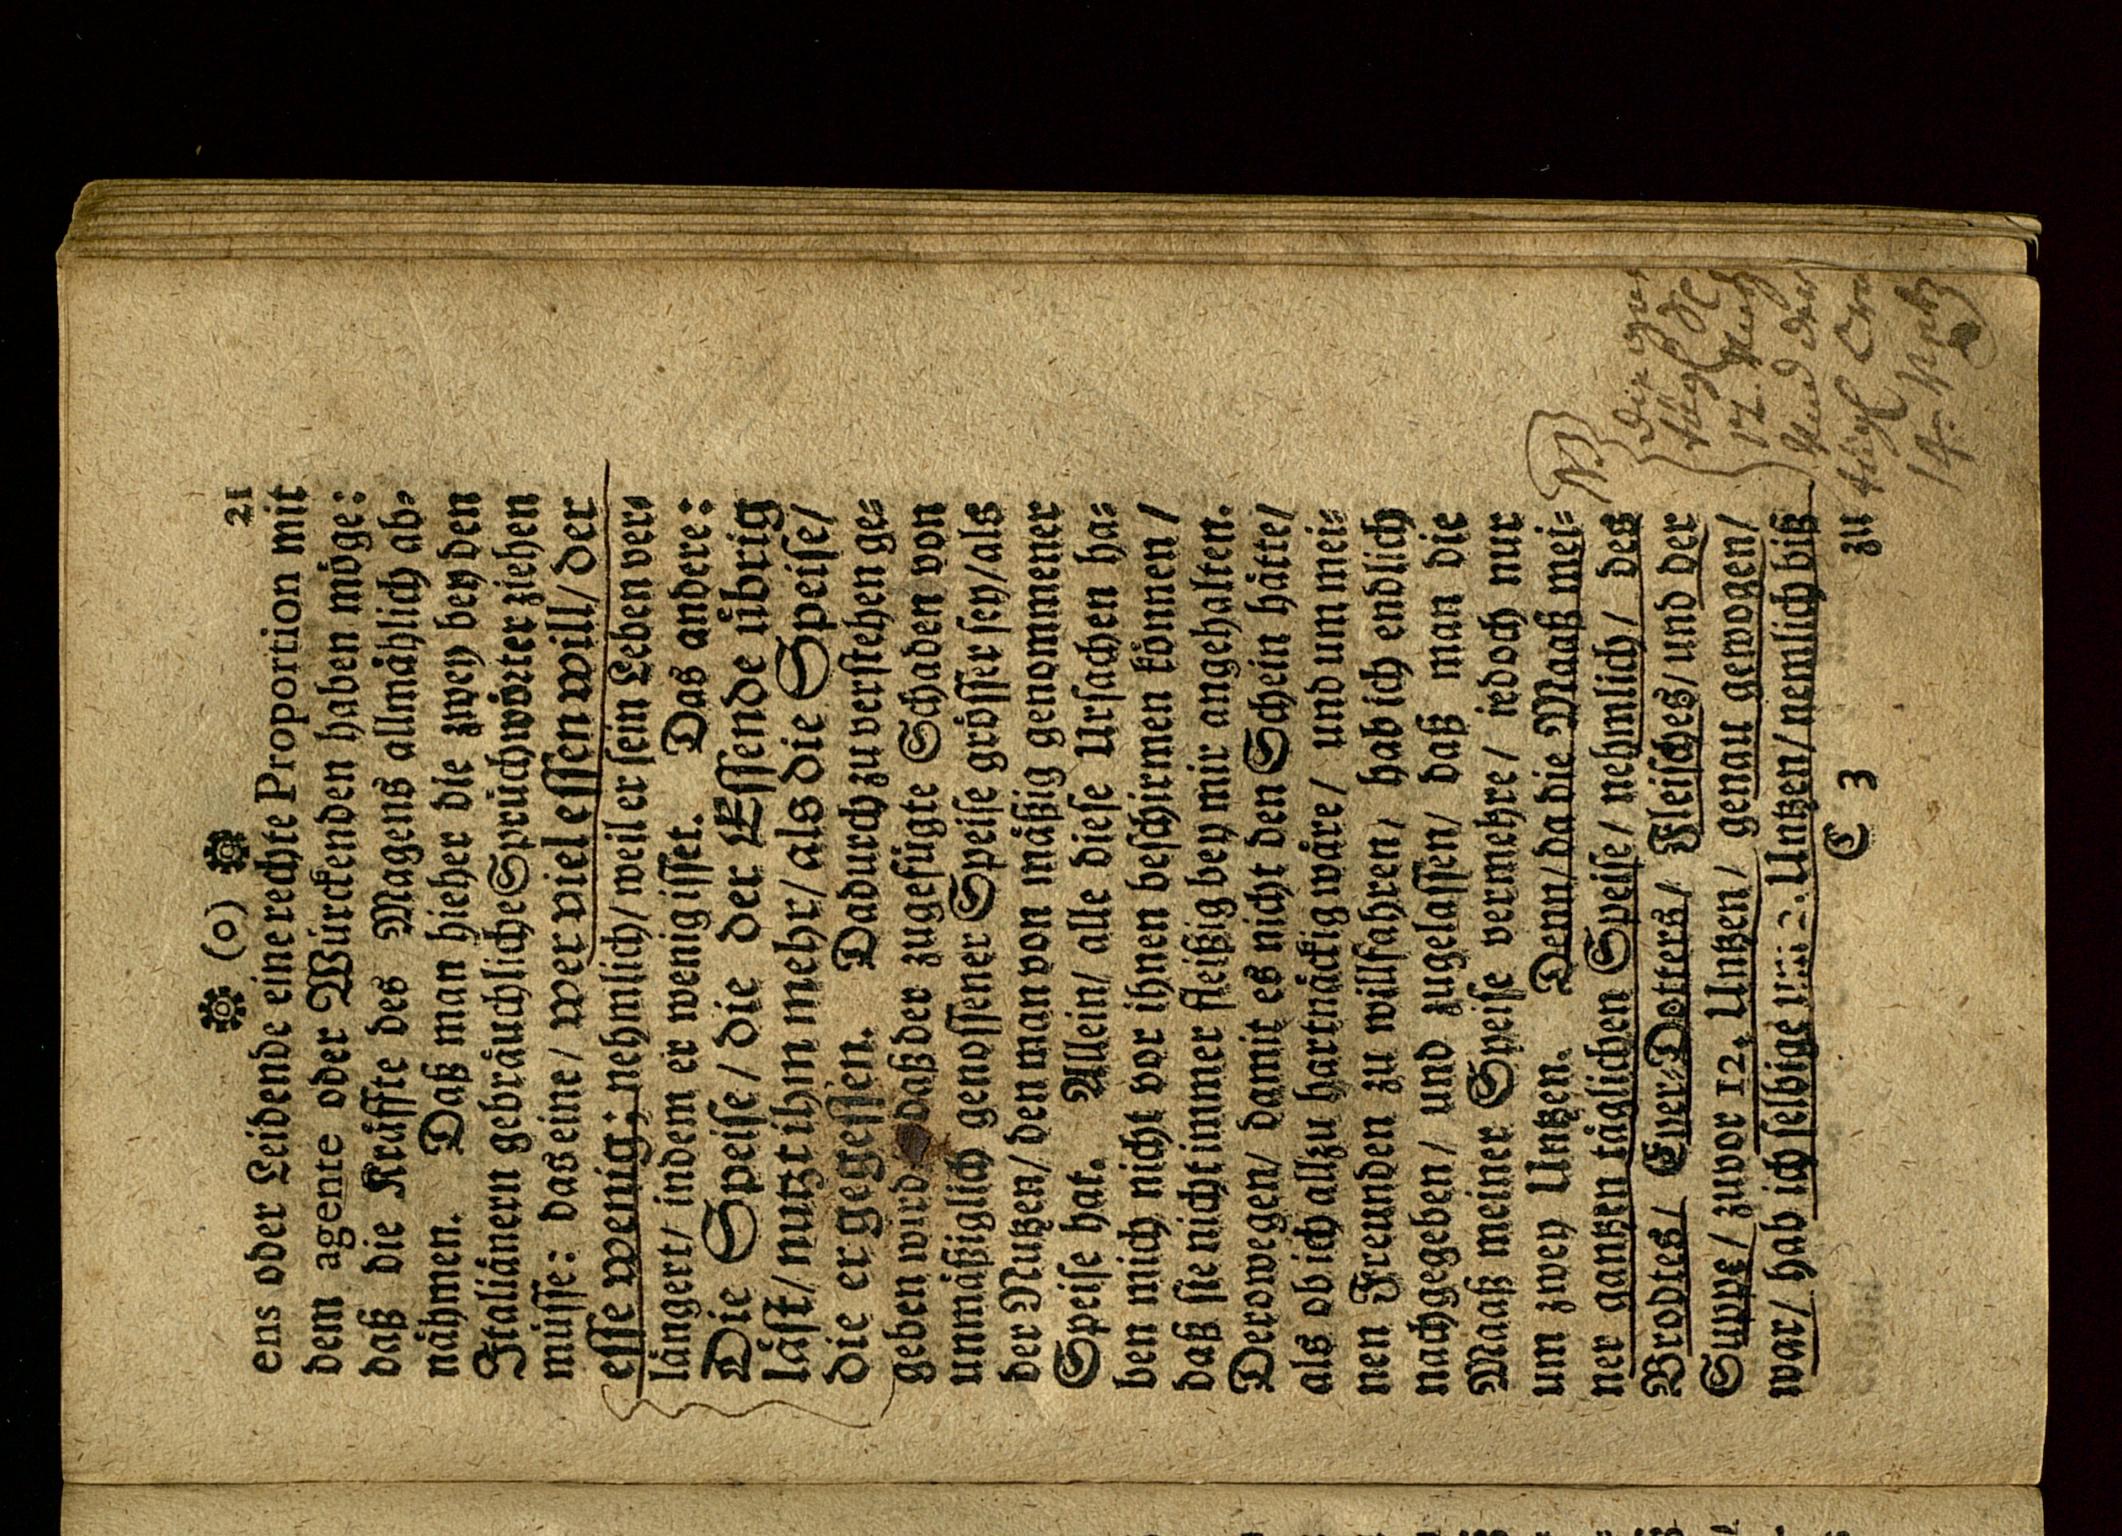 (o) 21
ens oder Leidende eine rechte Proportion mit
dem agente oder Würckenden haben möge:
daß die Kräffte des Magens allmählich ab⸗
nähmen. Daß man hieher die zwey bey den
Italiänern gebräuchliche Sprüchwörter ziehen
müsse: das eine/ wer viel essen will/ der
esse wenig; nehmlich/ weil er sein Leben ver⸗
längert/ indem er wenig isset. Das andere:
Die Speise/ die der Essende übrig
läst/ nutzt ihm mehr/ als die Speise/
die er gegessen. Dadurch zu verstehen ge⸗
geben wird daß der zugefügte Schaden von
unmäßiglich genossener Speise grösser sey/ als
der Nutzen/ den man von mäßig genommener
Speise hat. Allein/ alle diese Ursachen ha⸗
ben mich nicht vor ihnen beschirmen können/
daß sie nicht immer fleißig bey mir angehalten.
Derowegen/ damit es nicht den Schein hätte/
als ob ich allzu hartnäckig wäre/ und um mei⸗
nen Freunden zu willfahren/ hab ich endlich
nachgegeben/ und zugelassen/ daß man die
Maaß meiner Speise vermehre/ iedoch nur
um zwey Untzen. Denn/ da die Maaß mei⸗
ner gantzen täglichen Speise/ nehmlich/ des
Brodtes/ Eyer⸗Dotters/ Fleisches/ und der
Suppe/ zuvor 12. Untzen/ genau gewogen/
war/ hab ich selbige um 2. Untzen/ nemlich biß
C 3 zu
NB
tägl
12.
tägl
14.